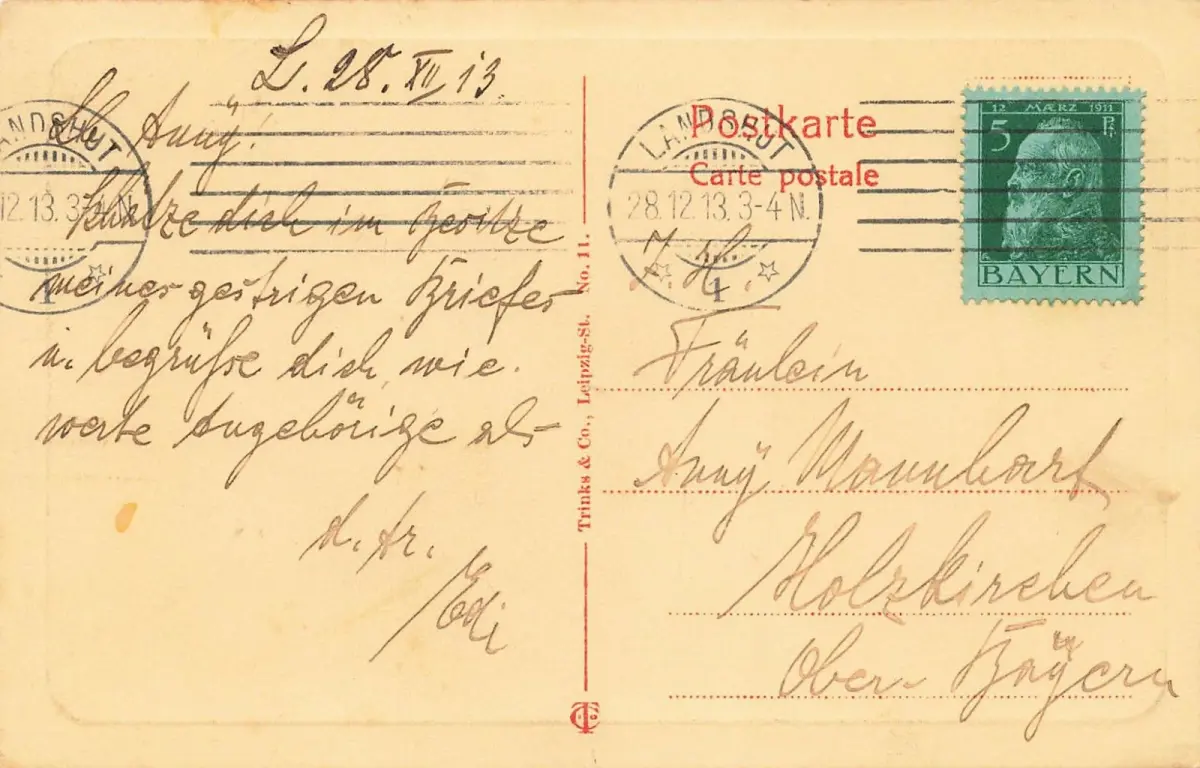 L. 28. XII 13.
Lb. Anny!
Schätze dich im Besitze
meines gestrigen Briefes
u. begrüße dich, wie.
werte Angehörige als
d. tr.
Edi
LANDSHUT
12.13. 3-4 N.
1
Postkarte
Carte postale
LANDSHUT
28.12.13. 3-4 N.
1
12 MÆRZ 1911
5 Pf.
BAYERN
Fräulein
Anny Mannhart
Holzkirchen
Ober-Bayern
Trinks & Co., Leipzig-St. No. 11.